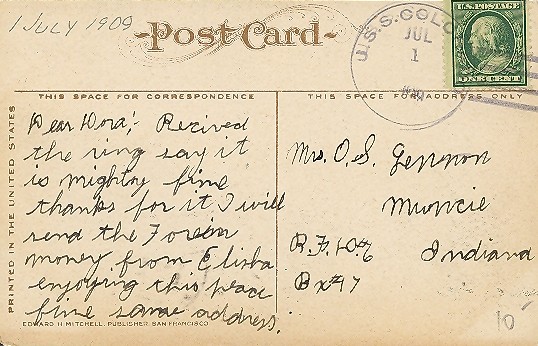 1 July 1909
Post Card
U.S.S. COLO
JUL
1
U.S. POSTAGE
ONE CENT
THIS SPACE FOR CORRESPONDENCE
THIS SPACE FOR ADDRESS ONLY
Dear Dora:- Recived
the ring say it
is mighty fine
thanks for it I will
send the Forein
money from Elisha
enjoying this peace
fine same address.
Mrs. O. S.
Muncie
R.F.D. #6 Indiana
Bx #7
PRINTED IN THE UNITED STATES
EDWARD H. MITCHELL, PUBLISHER, SAN FRANCISCO
10